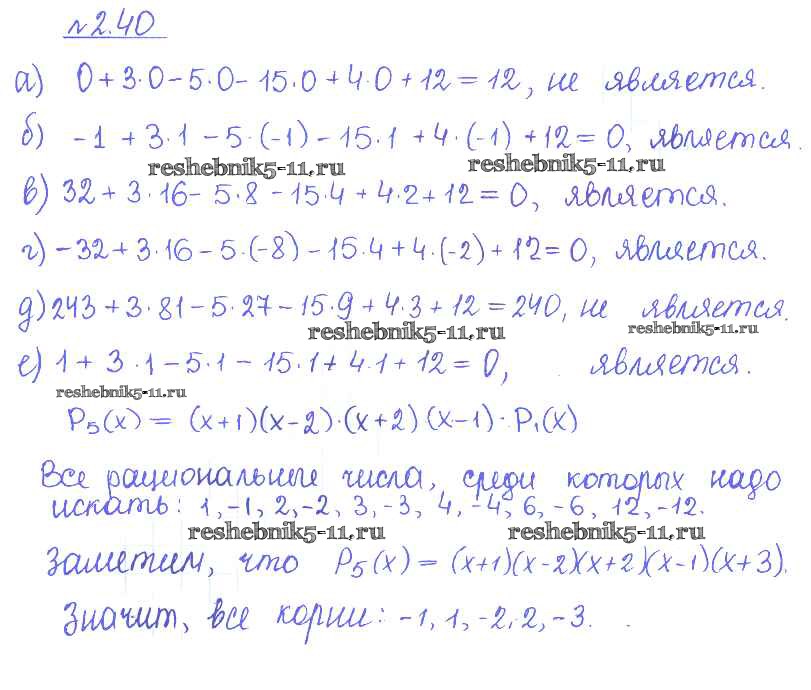 №2.40
а) 0+3·0-5·0-15·0+4·0+12=12, не является.
б) -1+3·1-5·(-1)-15·1+4·(-1)+12=0, является.
reshebnik5-11.ru reshebnik5-11.ru
в) 32+3·16-5·8-15·4+4·2+12=0, является.
г) -32+3·16-5·(-8)-15·4+4·(-2)+12=0, является.
д) 243+3·81-5·27-15·9+4·3+12=240, не является.
reshebnik5-11.ru reshebnik5-11.ru
е) 1+3·1-5·1-15·1+4·1+12=0, является.
reshebnik5-11.ru
P₅(x)=(x+1)(x-2)·(x+2)(x-1)·P₁(x)
Все рациональные числа, среди которых надо
искать: 1,-1, 2,-2, 3,-3, 4,-4, 6,-6, 12,-12.
reshebnik5-11.ru reshebnik5-11.ru
Заметим, что P₅(x)=(x+1)(x-2)(x+2)(x-1)(x+3).
Значит, все корни: -1, 1, -2, 2, -3.